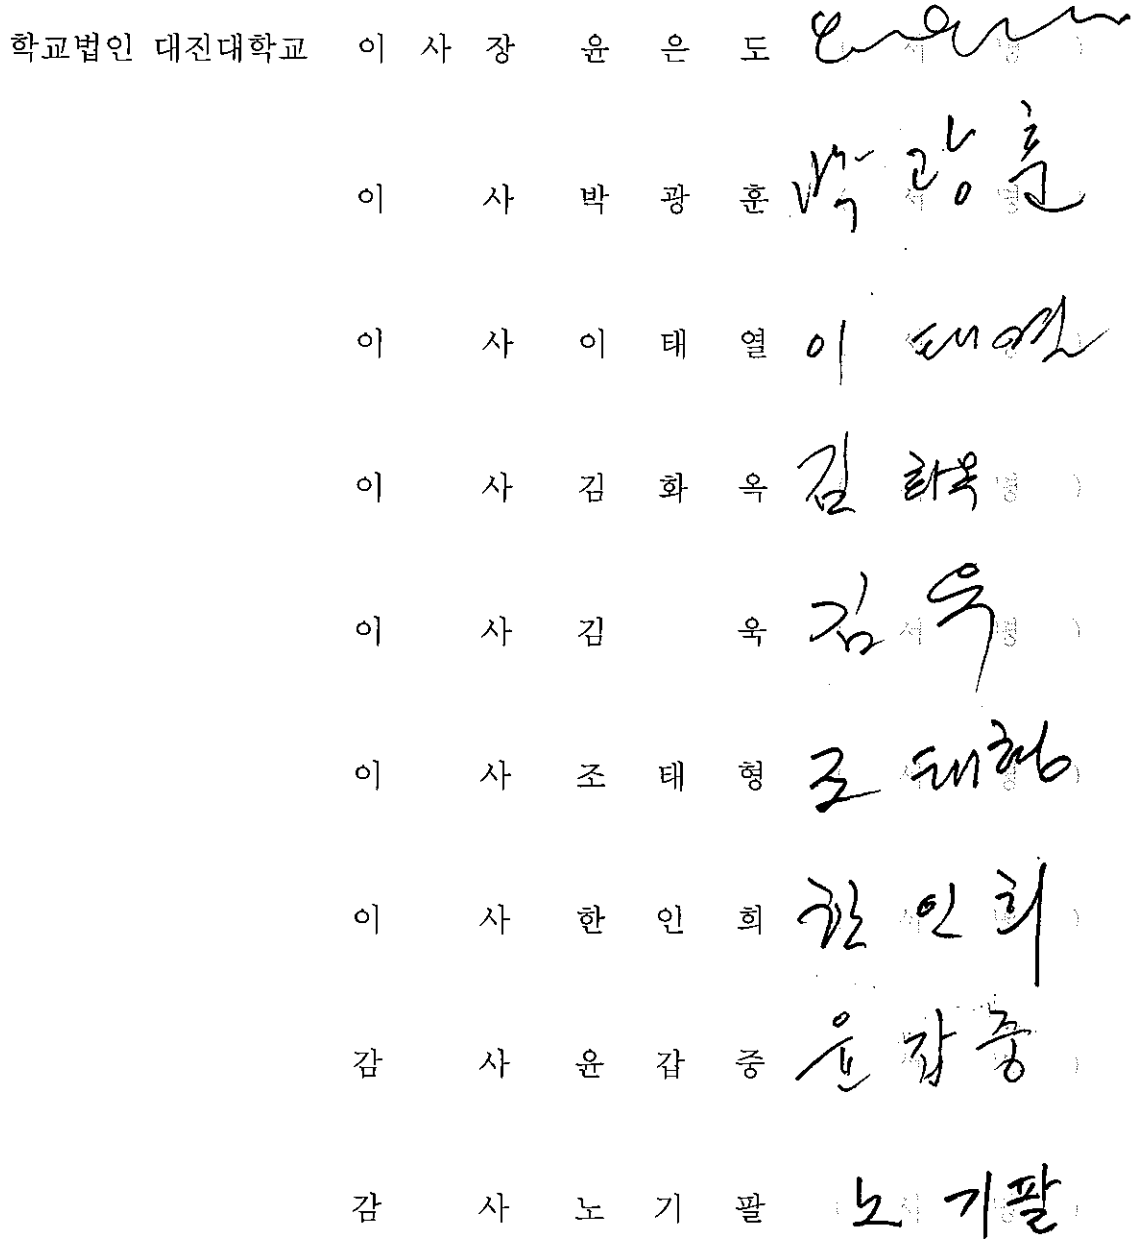 학교법인 대진대학교 이 사 장 윤 은 도 (서 명)
이 사 박 광 훈 박 광 훈 (서 명)
이 사 이 태 열 이 태 열
이 사 김 화 옥 김 화옥 (서 명)
이 사 김 욱 김 욱 (서 명)
이 사 조 태 형 조 태형 (서 명)
이 사 한 인 희 한 인 희 (서 명)
감 사 윤 갑 중 윤 갑 중 (서 명)
감 사 노 기 팔 노 기팔 (서 명)